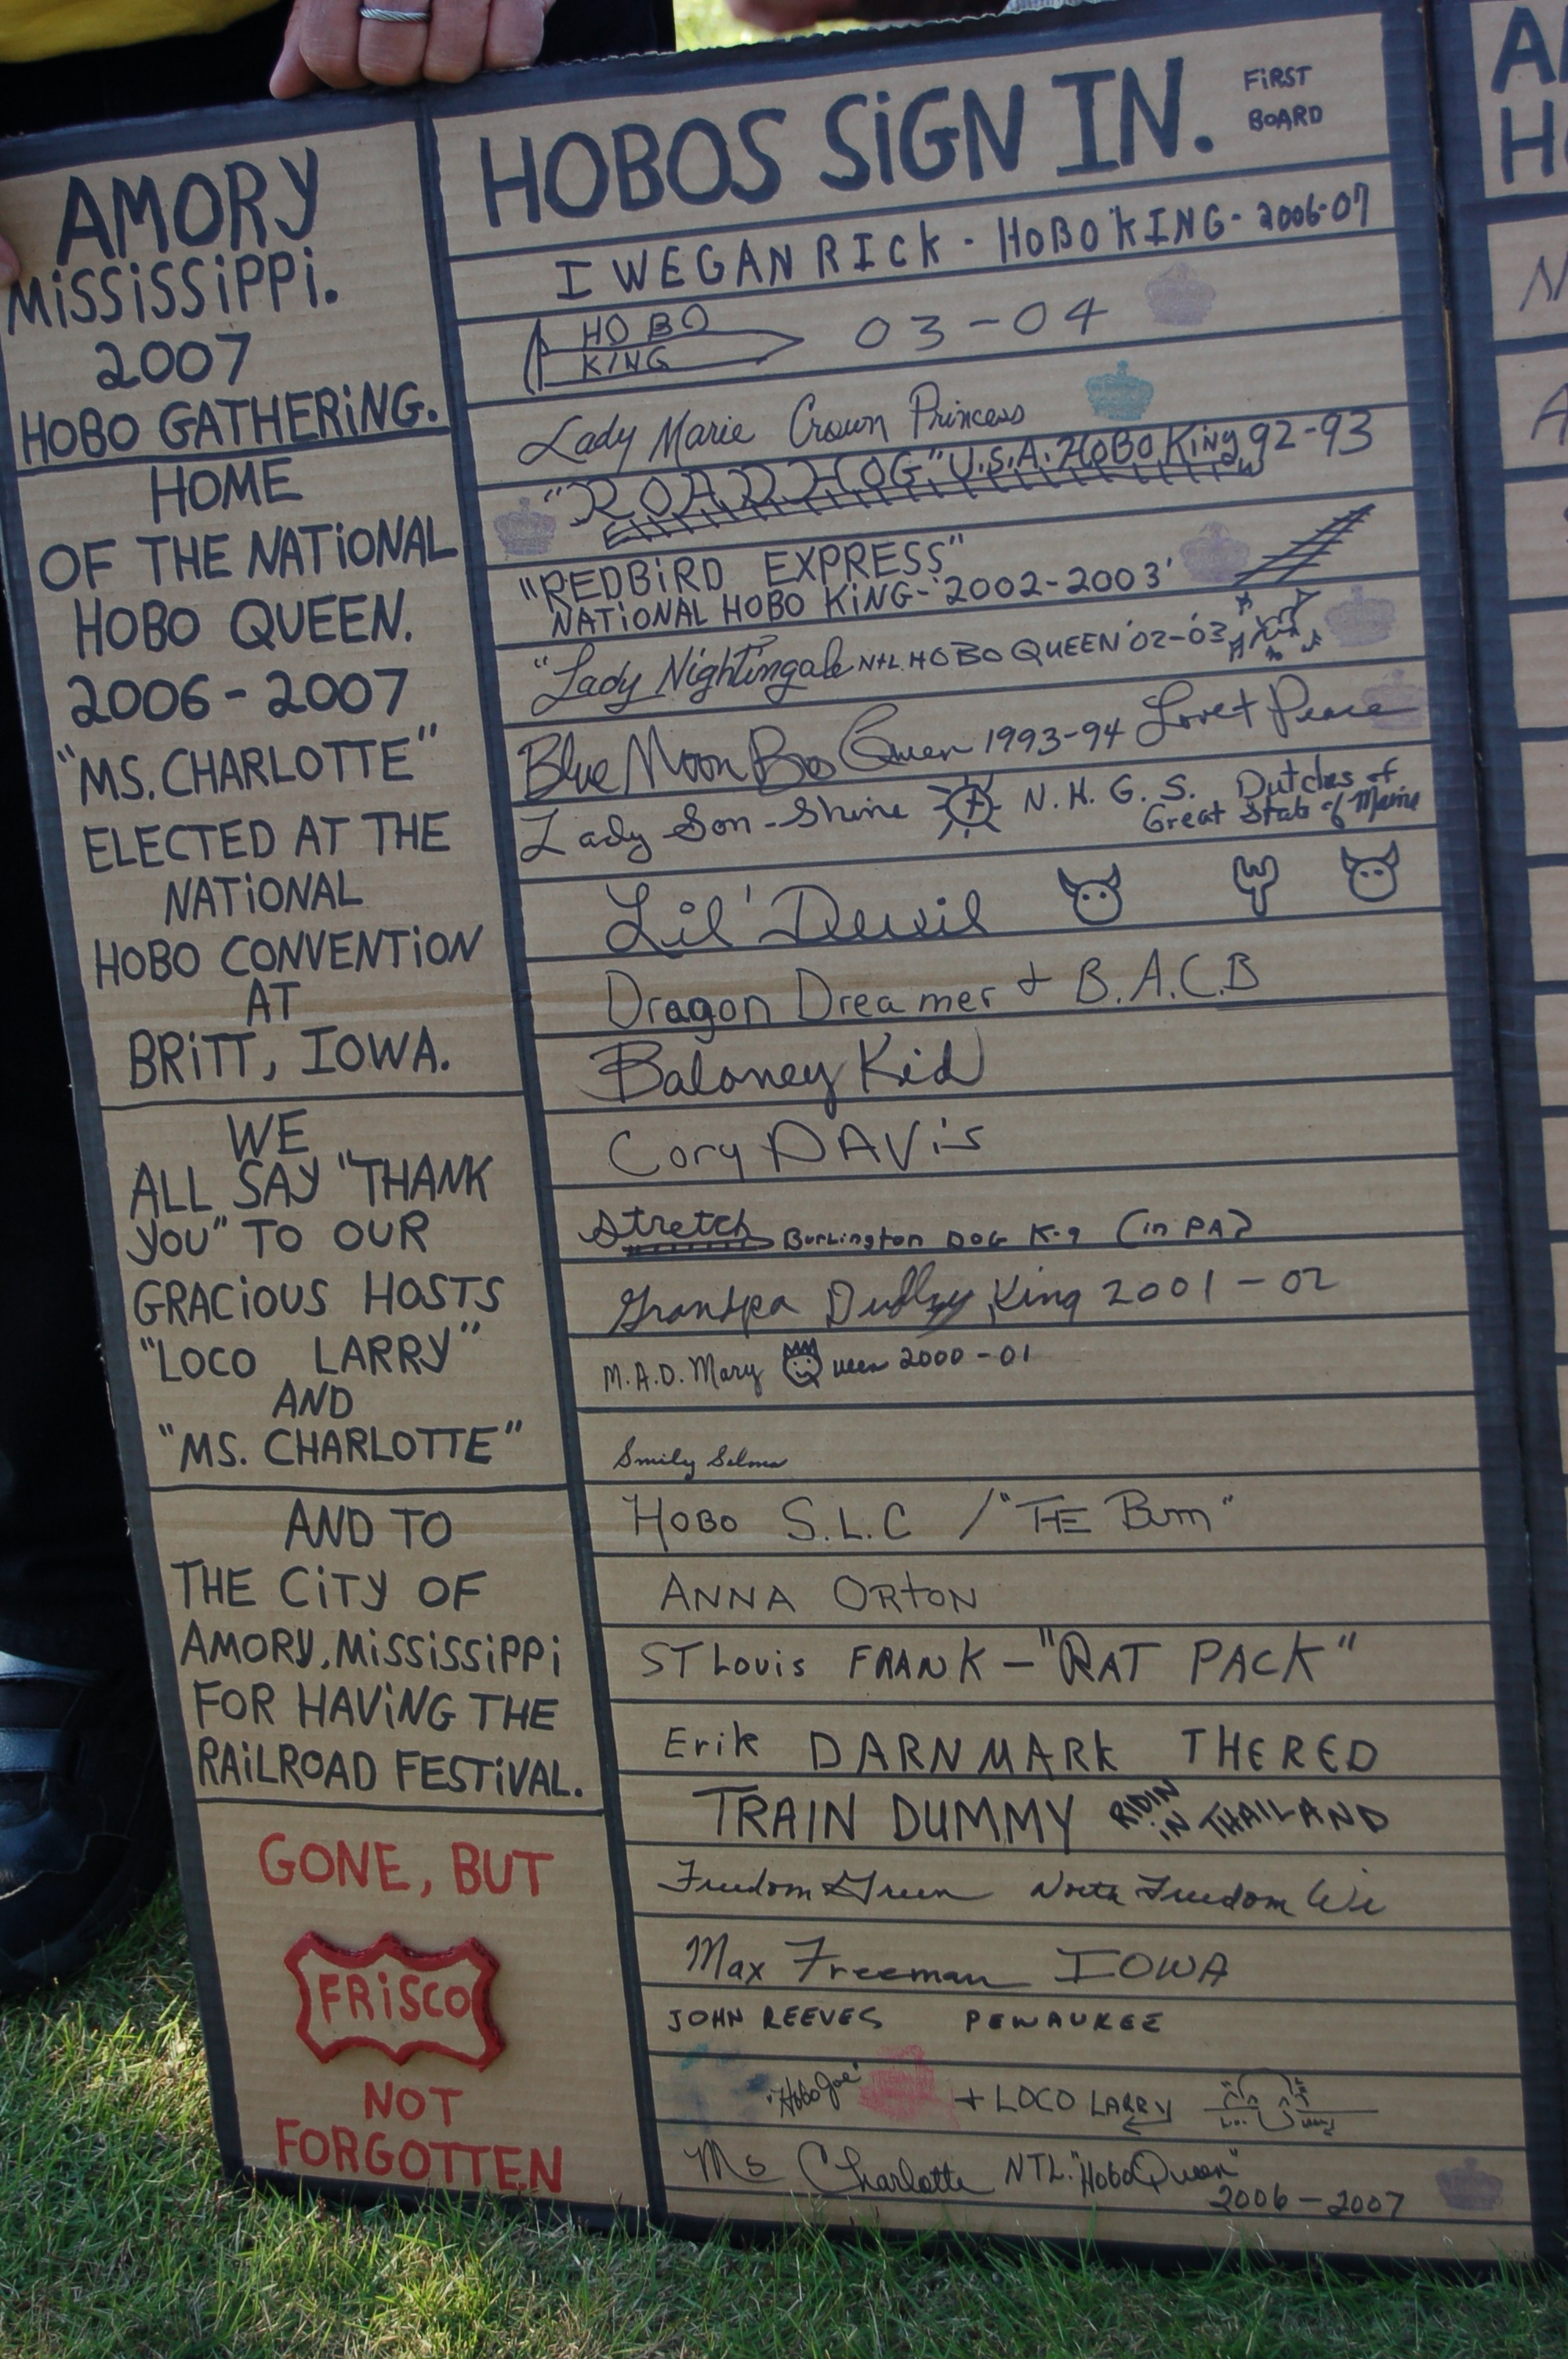 AMORY
MiSSiSSiPPi.
2007
HOBO GATHERiNG.
HOME
OF THE NATiONAL
HOBO QUEEN.
2006-2007
"MS. CHARLOTTE"
ELECTED AT THE
NATiONAL
HOBO CONVENTiON
AT
BRiTT, IOWA.
WE
ALL SAY "THANK
YOU" TO OUR
GRACiOUS HOSTS
"LOCO LARRY"
AND
"MS. CHARLOTTE"
AND TO
THE CiTY OF
AMORY, MiSSiSSiPPi
FOR HAViNG THE
RAiLROAD FESTiVAL.
GONE, BUT
FRiSCO
NOT
FORGOTTEN
HOBOS SiGN IN.
FiRST
BOARD
I WEGAN RICK - HOBO KING - 2006-07
HOBO
KING 03-04
Lady Marie Crown Princess
"ROAD HOG" U.S.A. HOBO King 92-93
"REDBiRD EXPRESS"
NATiONAL HOBO KiNG-'2002-2003'
"Lady Nightingale NtL HOBO QUEEN '02-'03
Blue Moon Bo Queen 1993-94 Love + Peace
Lady Son-Shine N.H.G.S. Dutches of
Great State of Maine
Lil' Devil
Dragon Dreamer + B.A.C.B
Baloney Kid
Cory DAVis
Stretch Burlington DOG K-9 (in PA)
Grandpa Dudley King 2001-02
M.A.D. Mary Queen 2000-01
Smily Selma
HOBO S.L.C / "THE Bum"
ANNA ORtON
ST Louis FRANK - "RAT PACK"
Erik DARNMARK THE RED
TRAIN DUMMY RIDIN IN THAILAND
Freedom Green North Freedom Wi
Max Freeman IOWA
JOHN REEVES PEWAUKEE
"Hobo Joe" + LOCO LARRY
Ms Charlotte NTL. "Hobo Queen"
2006-2007
A
H